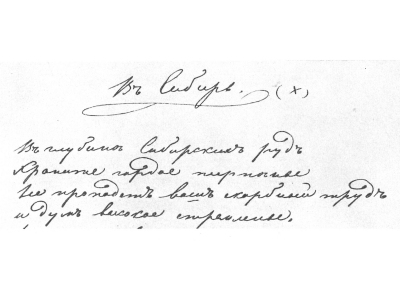 Въ Сибирь. (x)
Въ глубинѣ Сибирскихъ рудъ
Храните гордое терпѣнье
Не пропадетъ вашъ скорбный трудъ
и думъ высокое стремленье.